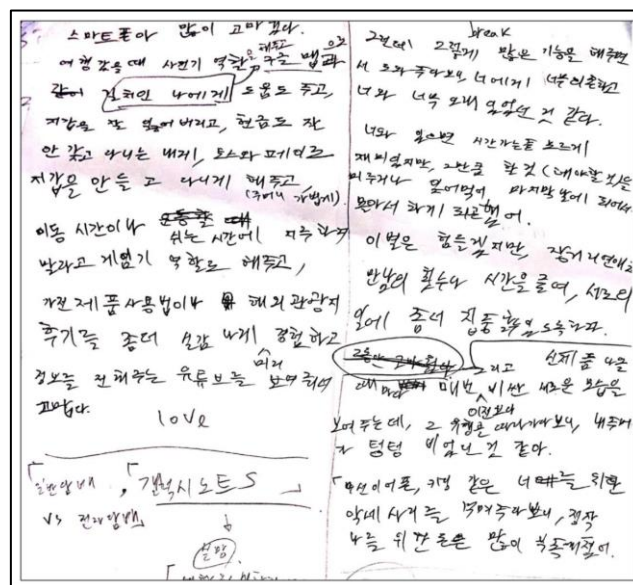 스마트폰아 많이 고마웠다.
여행갔을때 사진기 역할은 해주고 구글 맵으로
길치인 나에게 도움도 주고,
지갑을 잘 잃어버리고, 현금도 잘
안 갖고 다니는 내게, 토스와 페이로
지갑을 만들고 다니게 해주고,
(주머니 가볍게)
이동 시간이나 쉬는 시간에 지루하지
말라고 게임기 역할도 해주고,
가전제품사용법이나 해외관광지
후기를 좀더 실감 나게 경험하고
정보를 전해주는 유튜브를 미리 보여줘서
고맙다.
love
「일반담배 vs 전자담배」
「갤럭시노트 5」
break
그런데 그렇게 많은 기능을 해주면
서 도와주다보니 너에게 너무 의존하고
너와 너무 오래 있었던 것 같다.
너와 있으면 시간가는줄 모르게
재미있지만, 그만큼 할 것(해야할것)을
미루거나 잊어먹어 마지막날에 되어서
몰아서 하기 일쑤였어.
이별은 힘들겠지만, 장거리연애로
만남의 횟수나 시간을 줄여, 서로의
일에 좀더 집중할 수 있도록하자.
그리고 신제품 나올
때마다 매번 이전보다 비싼 새로운 모습을
보여주는데, 그 유행을 따라가다보니, 내주머니
가 텅텅 비었던 것 같아.
무선이어폰, 키링 같은 너를 위한
악세사리를 사다보니, 정작
나를 위한 돈은 많이 부족해졌어.